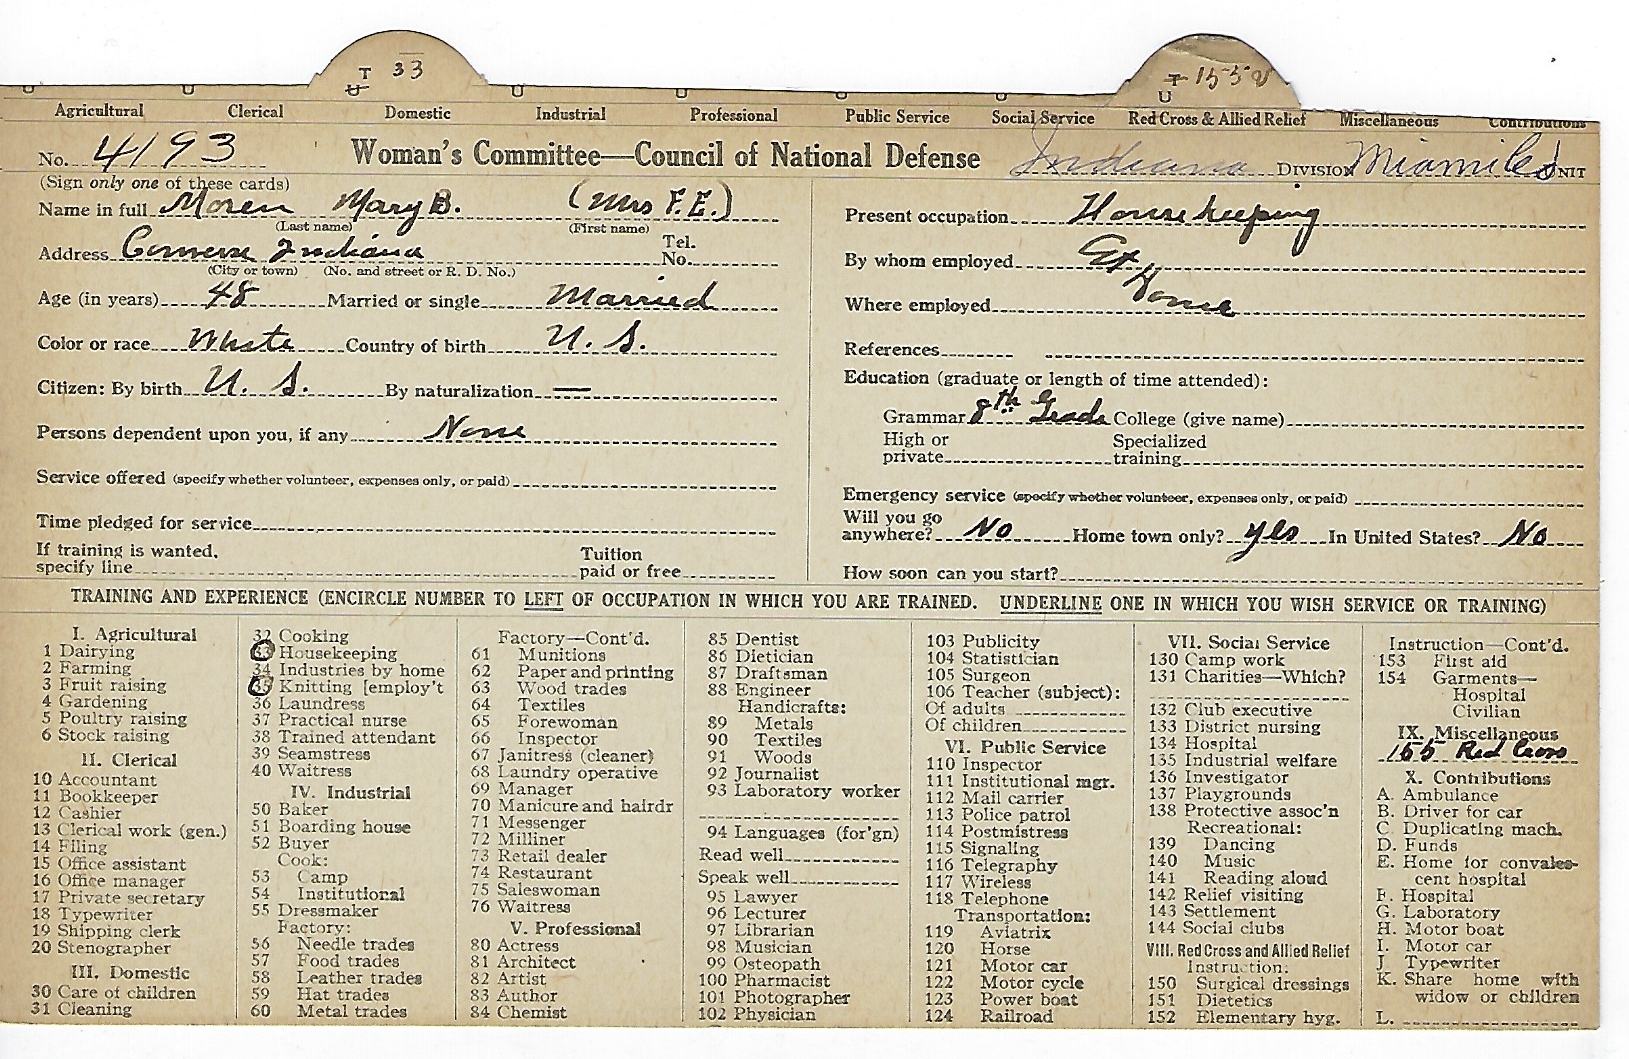 T 33
U
T 155 v
U
Agricultural Clerical Domestic Industrial Professional Public Service Social Service Red Cross & Allied Relief Miscellaneous Contributions
No. 4193 Woman's Committee—Council of National Defense Indiana DIVISION Miami Co UNIT
(Sign only one of these cards)
Name in full Moren Mary B. (Mrs F.E.)
(Last name) (First name)
Address Converse Indiana Tel. No.
(City or town) (No. and street or R. D. No.)
Age (in years) 48 Married or single Married
Color or race White Country of birth U. S.
Citizen: By birth U. S. By naturalization —
Persons dependent upon you, if any None
Service offered (specify whether volunteer, expenses only, or paid)
Time pledged for service
If training is wanted, specify line Tuition paid or free
Present occupation Housekeeping
By whom employed At
Where employed Home
References
Education (graduate or length of time attended):
Grammar 8th Grade College (give name)
High or private Specialized training
Emergency service (specify whether volunteer, expenses only, or paid)
Will you go anywhere? No Home town only? yes In United States? No
How soon can you start?
TRAINING AND EXPERIENCE (ENCIRCLE NUMBER TO LEFT OF OCCUPATION IN WHICH YOU ARE TRAINED. UNDERLINE ONE IN WHICH YOU WISH SERVICE OR TRAINING)
I. Agricultural
1 Dairying
2 Farming
3 Fruit raising
4 Gardening
5 Poultry raising
6 Stock raising
II. Clerical
10 Accountant
11 Bookkeeper
12 Cashier
13 Clerical work (gen.)
14 Filing
15 Office assistant
16 Office manager
17 Private secretary
18 Typewriter
19 Shipping clerk
20 Stenographer
III. Domestic
30 Care of children
31 Cleaning
32 Cooking
33 Housekeeping
34 Industries by home
35 Knitting [employ't
36 Laundress
37 Practical nurse
38 Trained attendant
39 Seamstress
40 Waitress
IV. Industrial
50 Baker
51 Boarding house
52 Buyer
Cook:
53 Camp
54 Institutional
55 Dressmaker
Factory:
56 Needle trades
57 Food trades
58 Leather trades
59 Hat trades
60 Metal trades
Factory—Cont'd.
61 Munitions
62 Paper and printing
63 Wood trades
64 Textiles
65 Forewoman
66 Inspector
67 Janitress (cleaner)
68 Laundry operative
69 Manager
70 Manicure and hairdr
71 Messenger
72 Milliner
73 Retail dealer
74 Restaurant
75 Saleswoman
76 Waitress
V. Professional
80 Actress
81 Architect
82 Artist
83 Author
84 Chemist
85 Dentist
86 Dietician
87 Draftsman
88 Engineer
Handicrafts:
89 Metals
90 Textiles
91 Woods
92 Journalist
93 Laboratory worker
94 Languages (for'gn)
Read well
Speak well
95 Lawyer
96 Lecturer
97 Librarian
98 Musician
99 Osteopath
100 Pharmacist
101 Photographer
102 Physician
103 Publicity
104 Statistician
105 Surgeon
106 Teacher (subject):
Of adults
Of children
VI. Public Service
110 Inspector
111 Institutional mgr.
112 Mail carrier
113 Police patrol
114 Postmistress
115 Signaling
116 Telegraphy
117 Wireless
118 Telephone
Transportation:
119 Aviatrix
120 Horse
121 Motor car
122 Motor cycle
123 Power boat
124 Railroad
VII. Social Service
130 Camp work
131 Charities—Which?
132 Club executive
133 District nursing
134 Hospital
135 Industrial welfare
136 Investigator
137 Playgrounds
138 Protective assoc'n
Recreational:
139 Dancing
140 Music
141 Reading aloud
142 Relief visiting
143 Settlement
144 Social clubs
VIII. Red Cross and Allied Relief
Instruction:
150 Surgical dressings
151 Dietetics
152 Elementary hyg.
Instruction—Cont'd.
153 First aid
154 Garments—
Hospital
Civilian
IX. Miscellaneous
155 Red Cross
X. Contributions
A. Ambulance
B. Driver for car
C. Duplicating mach.
D. Funds
E. Home for convales-
cent hospital
F. Hospital
G. Laboratory
H. Motor boat
I. Motor car
J. Typewriter
K. Share home with
widow or children
L.